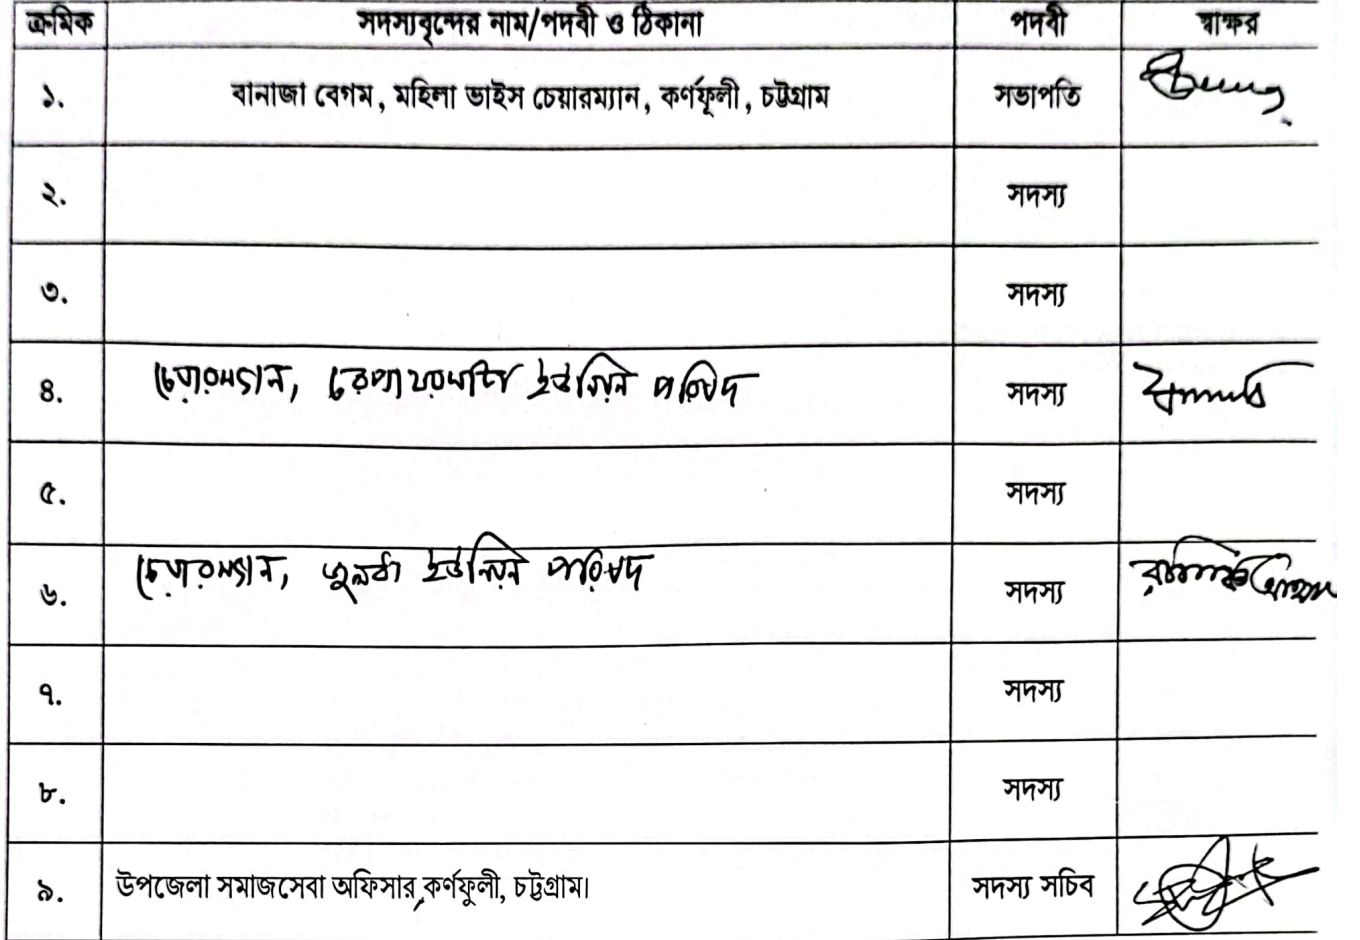 ক্রমিক সদস্যবৃন্দের নাম/পদবী ও ঠিকানা পদবী স্বাক্ষর
১. বানাজা বেগম, মহিলা ভাইস চেয়ারম্যান, কর্ণফূলী, চট্টগ্রাম সভাপতি
২. সদস্য
৩. সদস্য
৪. চেয়ারম্যান, ইউনিয়ন পরিষদ সদস্য
৫. সদস্য
৬. চেয়ারম্যান, জুলধা ইউনিয়ন পরিষদ সদস্য
৭. সদস্য
৮. সদস্য
৯. উপজেলা সমাজসেবা অফিসার,কর্ণফুলী, চট্টগ্রাম। সদস্য সচিব